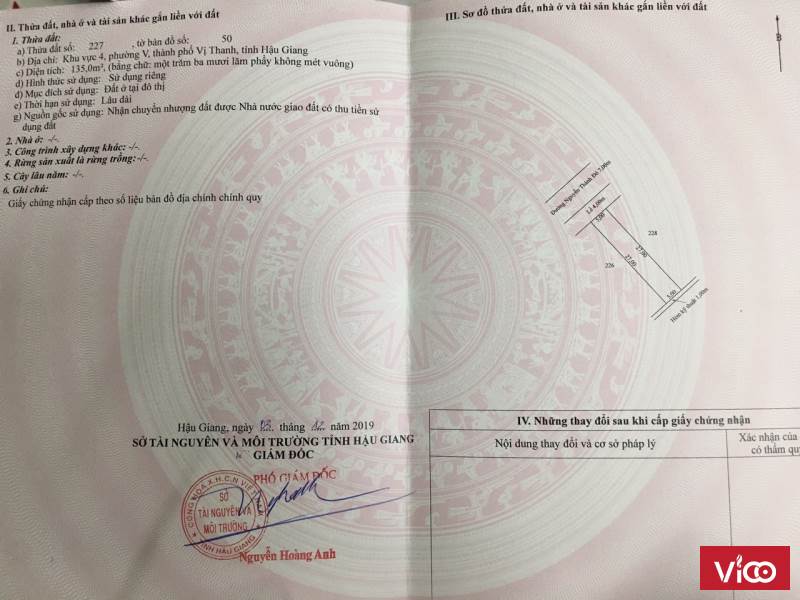 II. Thửa đất, nhà ở và tài sản khác gắn liền với đất
1. Thửa đất:
a) Thửa đất số: 227 , tờ bản đồ số: 50
b) Địa chỉ: Khu vực 4, phường V, thành phố Vị Thanh, tỉnh Hậu Giang
c) Diện tích: 135,0m², (bằng chữ: một trăm ba mươi lăm phẩy không mét vuông)
d) Hình thức sử dụng: Sử dụng riêng
đ) Mục đích sử dụng: Đất ở tại đô thị
e) Thời hạn sử dụng: Lâu dài
g) Nguồn gốc sử dụng: Nhận chuyển nhượng đất được Nhà nước giao đất có thu tiền sử
dụng đất
2. Nhà ở: -/-
3. Công trình xây dựng khác: -/-
4. Rừng sản xuất là rừng trồng: -/-
5. Cây lâu năm: -/-
6. Ghi chú:
Giấy chứng nhận cấp theo số liệu bản đồ địa chính chính quy
Hậu Giang, ngày 03 tháng 12 năm 2019
SỞ TÀI NGUYÊN VÀ MÔI TRƯỜNG TỈNH HẬU GIANG
GIÁM ĐỐC
PHÓ GIÁM ĐỐC
CỘNG HÒA X.H.C.N VIỆT NAM
SỞ
TÀI NGUYÊN VÀ
MÔI TRƯỜNG
TỈNH HẬU GIANG
Nguyễn Hoàng Anh
III. Sơ đồ thửa đất, nhà ở và tài sản khác gắn liền với đất
B
Đường Nguyễn Thành Đô 7,00m
Lề 4,00m
5.00
228
27.00
27.00
226
5.00
Hẻm kỹ thuật 1,00m
IV. Những thay đổi sau khi cấp giấy chứng nhận
Nội dung thay đổi và cơ sở pháp lý
Xác nhận của
có thẩm qu
VICO